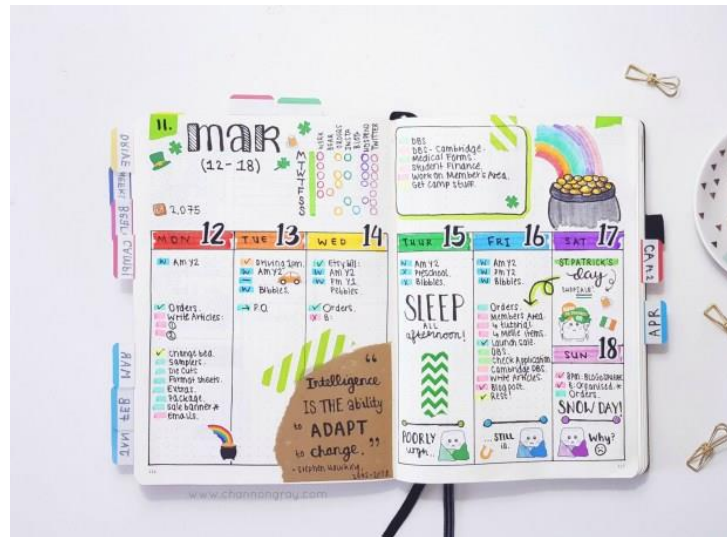 11.
MAR
(12-18)
WORK
BEAR
ORDERS
INSTA
BLOG
NO SPEND
TWITTER
M
T
W
T
F
S
S
2,075
MON 12
W AM Y2
Orders.
Write Articles:
①
②
Change bed.
Samplers.
Die Cuts
Format Sheets.
Extras.
Package.
Sale banner &
emails.
TUE 13
Driving 1pm.
W AM Y2
W Bibbles.
→ P.O.
WED 14
Etsy Bill:
W AM Y2
W PM Y2
Pebbles.
Orders.
“
Intelligence
IS THE ability
to ADAPT
to change.”
- Stephen Hawking
1942-2018
DBS
DBS - Cambridge.
Medical Forms.
Student Finance.
Work on Member's Area.
Get Camp Stuff.
THUR 15
AM Y2
Preschool.
Bibbles.
SLEEP
ALL
afternoon!
POORLY
FRI 16
W AM Y2
W PM Y2
W Bibbles.
Orders.
Members Area.
4 tutorials.
4 Meme items.
Launch Sale.
DBS.
Check Application
Cambridge DBS.
Write Articles.
Blog post.
Rest!
...STILL
is.
SAT 17
ST. PATRICK'S
day
SUN 18
8PM: BLOGOWNERS
E: Organised.
Orders.
SNOW DAY!
Why?
DRIVE
CAMP!
MAR
FEB
JAN
CAM2
APR
www.channongray.com